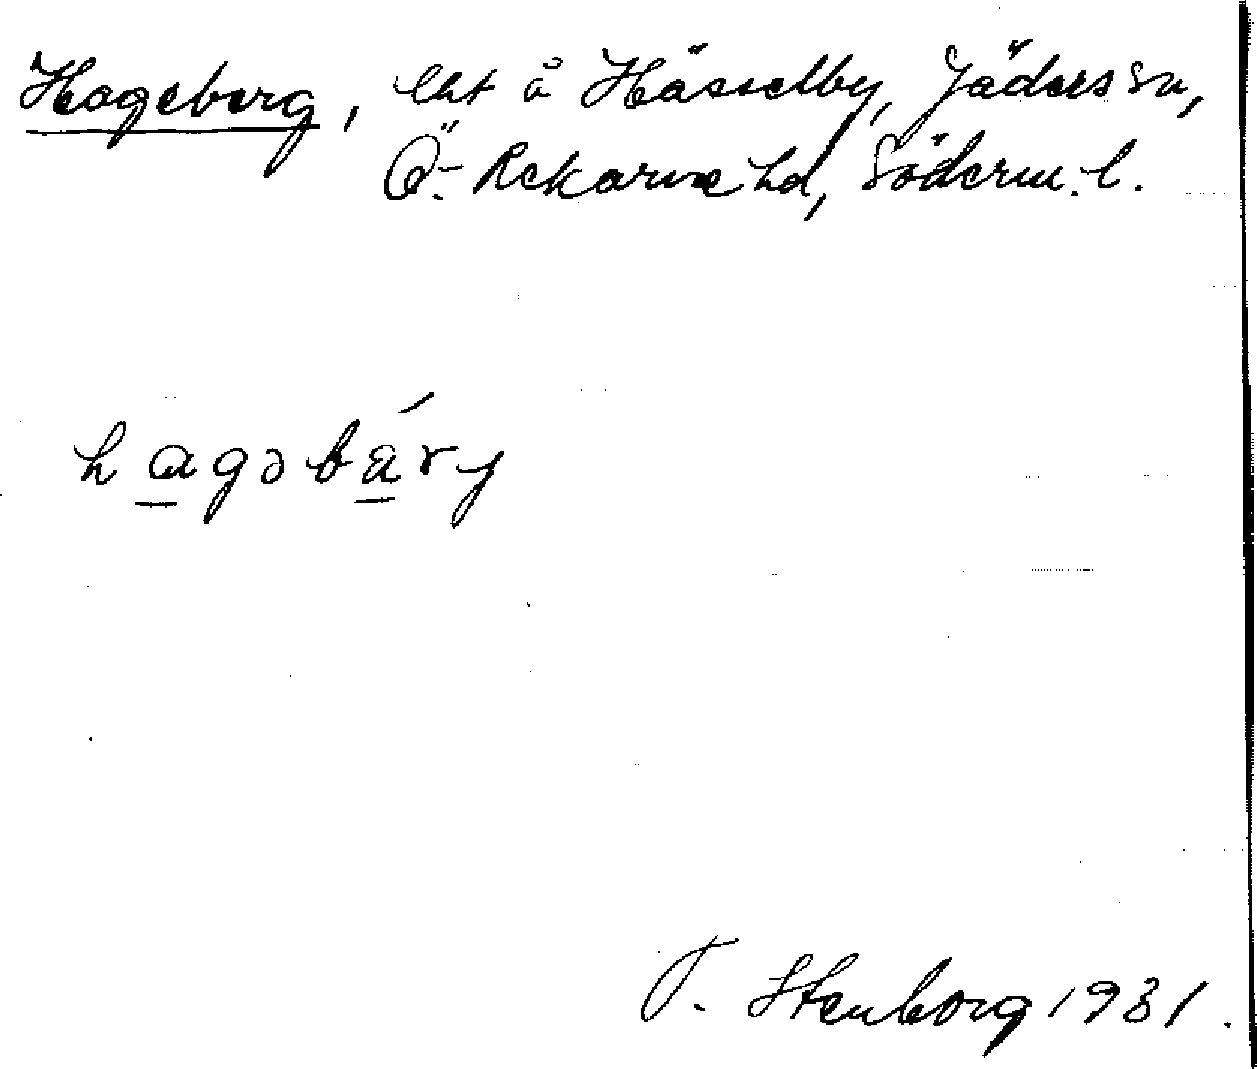 Hageberg, lht å Hässelby, Jäders sn,
Ö. Rekarne hd, Söderm. l.
hagəbärj
T. Stenborg 1931.